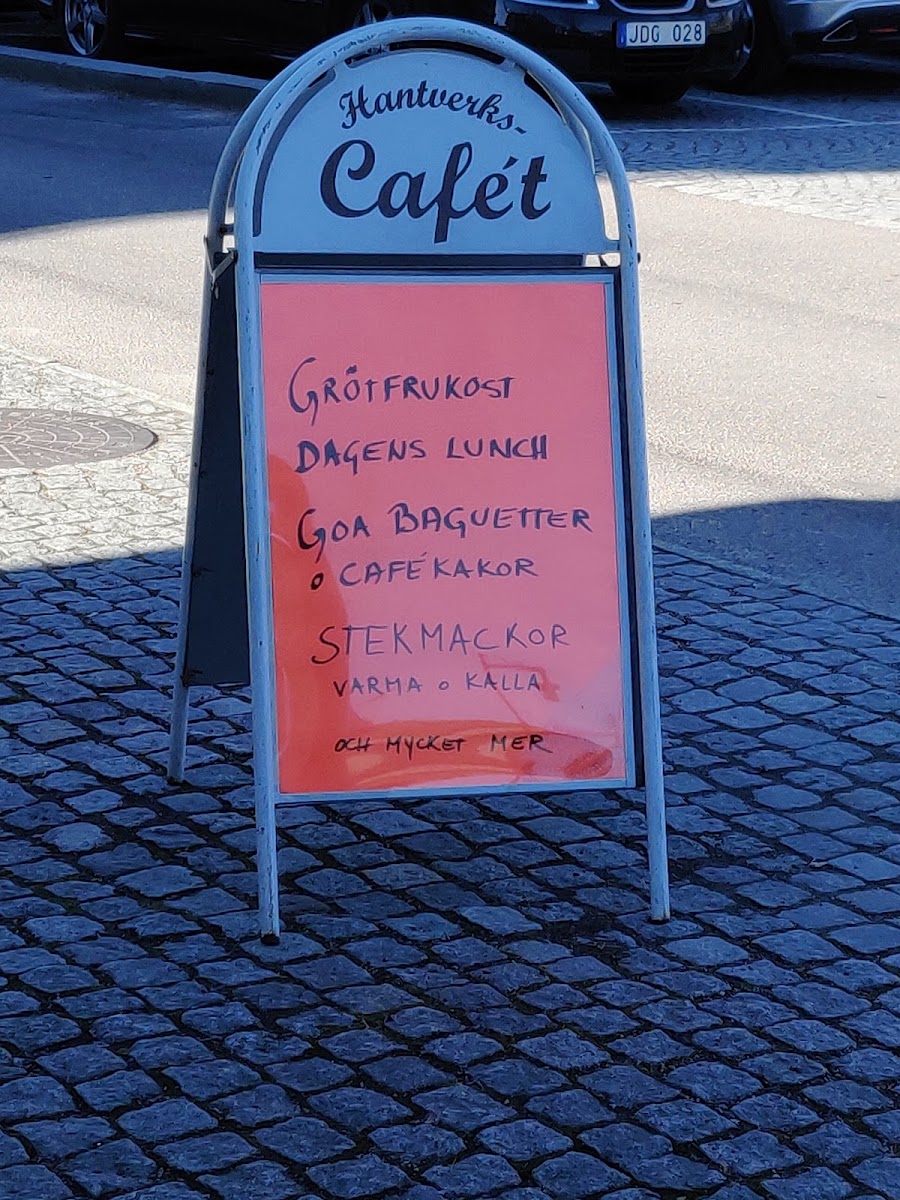 JDG 028
Hantverks-
Cafét
GRÖTFRUKOST
DAGENS LUNCH
GOA BAGUETTER
o CAFÉKAKOR
STEKMACKOR
VARMA o KALLA
OCH MYCKET MER